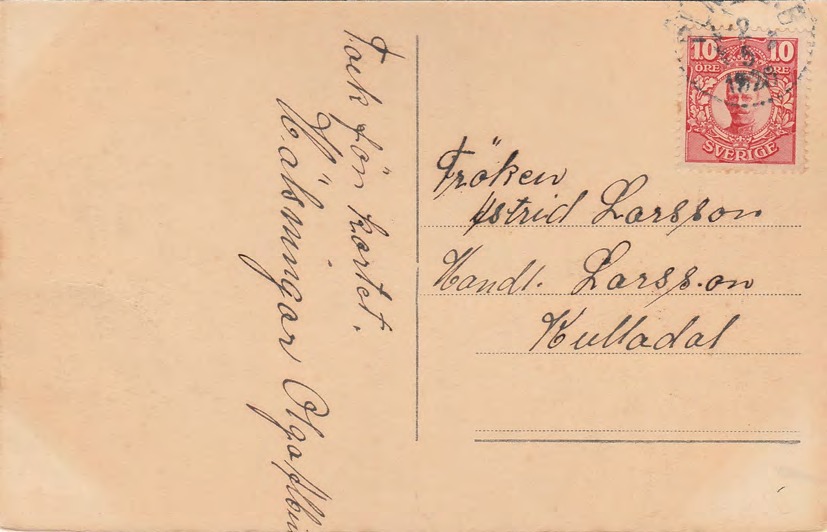 Tack för kortet.
Hälsningar Olga
10 10
ÖRE ÖRE
SVERIGE
Fröken
Astrid Larsson
Handl. Larsson
Kulladal